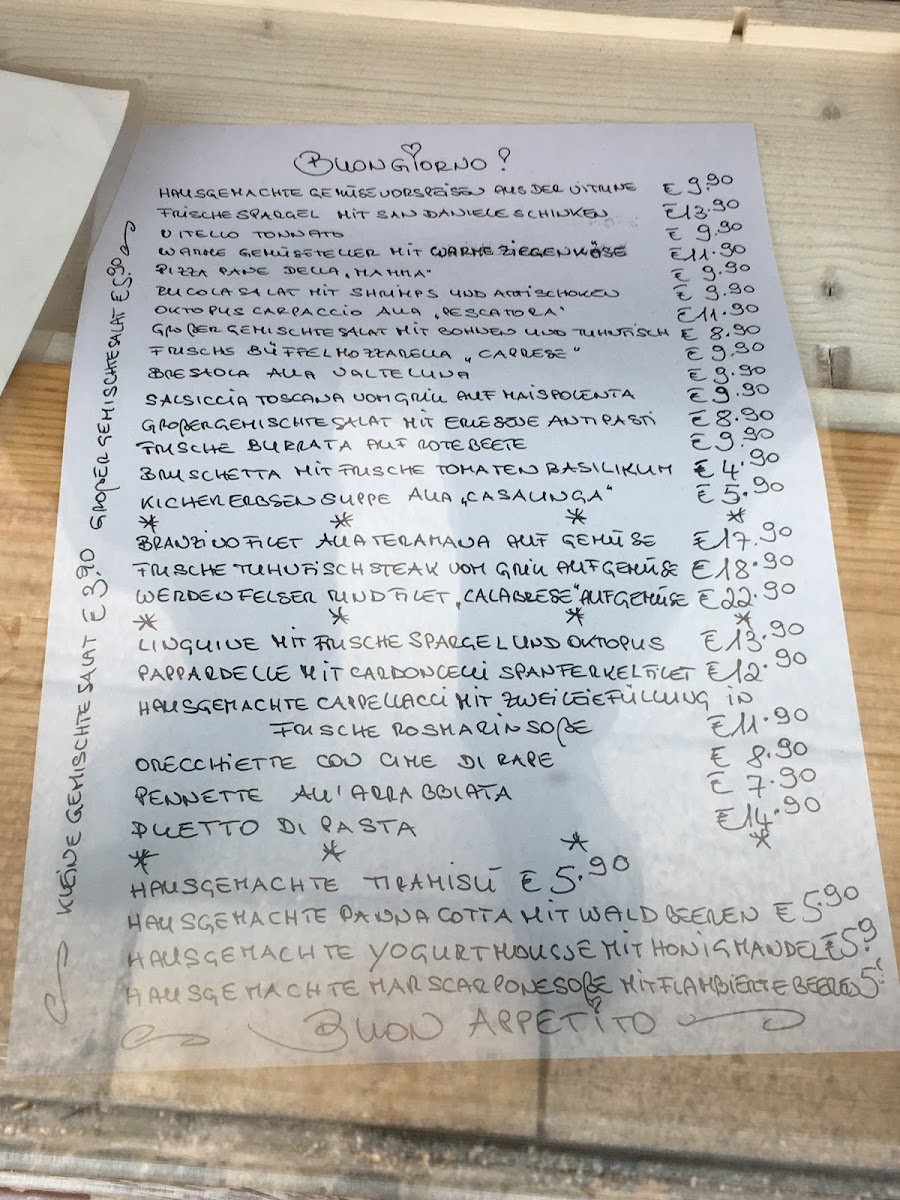 BUONGIORNO!
HAUSGEMACHTE GEMÜSEVORSPEISEN AUS DER VITRINE € 9.90
FRISCHE SPARGEL MIT SAN DANIELE SCHINKEN €13.90
VITELLO TONNATO € 9.90
WARME GEMÜSETELLER MIT WARME ZIEGENKÄSE €11.90
PIZZA PANE DELLA „MAMMA" € 9.90
RUCOLASALAT MIT SHRIMPS UND ARTISCHOKEN € 9.90
OKTOPUS CARPACCIO ALLA „PESCATORA" €11.90
GROßER GEMISCHTE SALAT MIT BOHNEN UND THUNFISCH € 8.90
FRISCHE BÜFFELMOZZARELLA „CAPRESE" € 9.90
BRESAOLA ALLA VALTELLINA € 9.90
SALSICCIA TOSCANA VOM GRILL AUF MAISPOLENTA € 9.90
GROßER GEMISCHTE SALAT MIT ERLESENE ANTIPASTI € 8.90
FRISCHE BURRATA AUF ROTE BEETE € 9.90
BRUSCHETTA MIT FRISCHE TOMATEN BASILIKUM € 4.90
KICHERERBSENSUPPE ALLA „CASALINGA" € 5.90
* * * *
BRANZINOFILET ALLA TERAMANA AUF GEMÜSE €17.90
FRISCHE THUNFISCHSTEAK VOM GRILL AUF GEMÜSE €18.90
WERDENFELSER RINDFILET „CALABRESE" AUF GEMÜSE €22.90
* * * *
LINGUINE MIT FRISCHE SPARGEL UND OKTOPUS €13.90
PAPPARDELLE MIT CARDONCELLI SPANFERKELFILET €12.90
HAUSGEMACHTE CAPPELLACCI MIT ZWEILEIFÜLLUNG IN
FRISCHE ROSMARINSOßE €11.90
ORECCHIETTE CON CIME DI RAPE € 8.90
PENNETTE ALL'ARRABBIATA € 7.90
DUETTO DI PASTA €14.90
* * * *
HAUSGEMACHTE TIRAMISÚ € 5.90
HAUSGEMACHTE PANNA COTTA MIT WALDBEEREN € 5.90
HAUSGEMACHTE YOGURTMOUSSE MIT HONIGMANDEL € 5.9
HAUSGEMACHTE MARSCARPONESOßE MIT FLAMBIERTE BEEREN 5
BUON APPETITO
KLEINE GEMISCHTE SALAT € 3.90 GROßER GEMISCHTE SALAT € 5.90